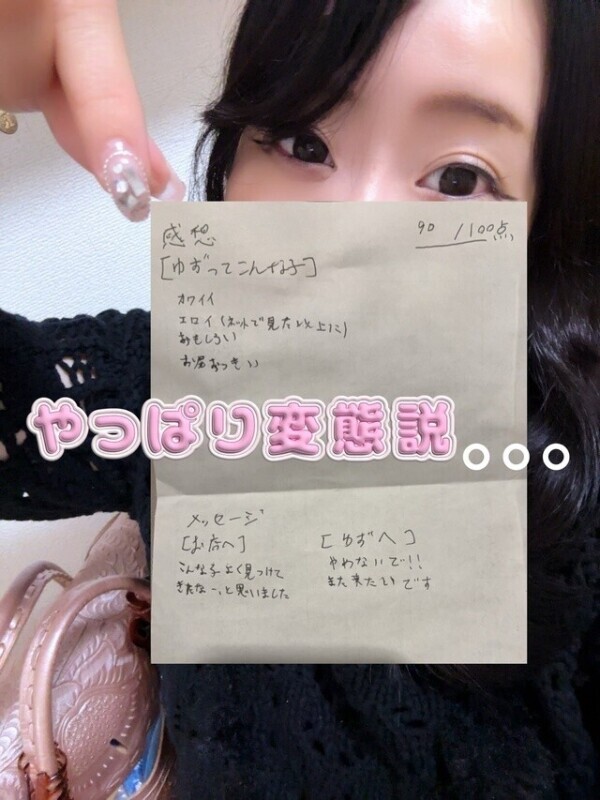 感想
90 /100点
[ゆずってこんな子]
カワイイ
エロイ(ネットで見た以上に)
おもしろい
お尻おっきい
やっぱり変態説。。。
メッセージ
[お店へ]
こんな子よく見つけて
きたなーっと思いました
[ゆずへ]
やわないで!!
また来たいです